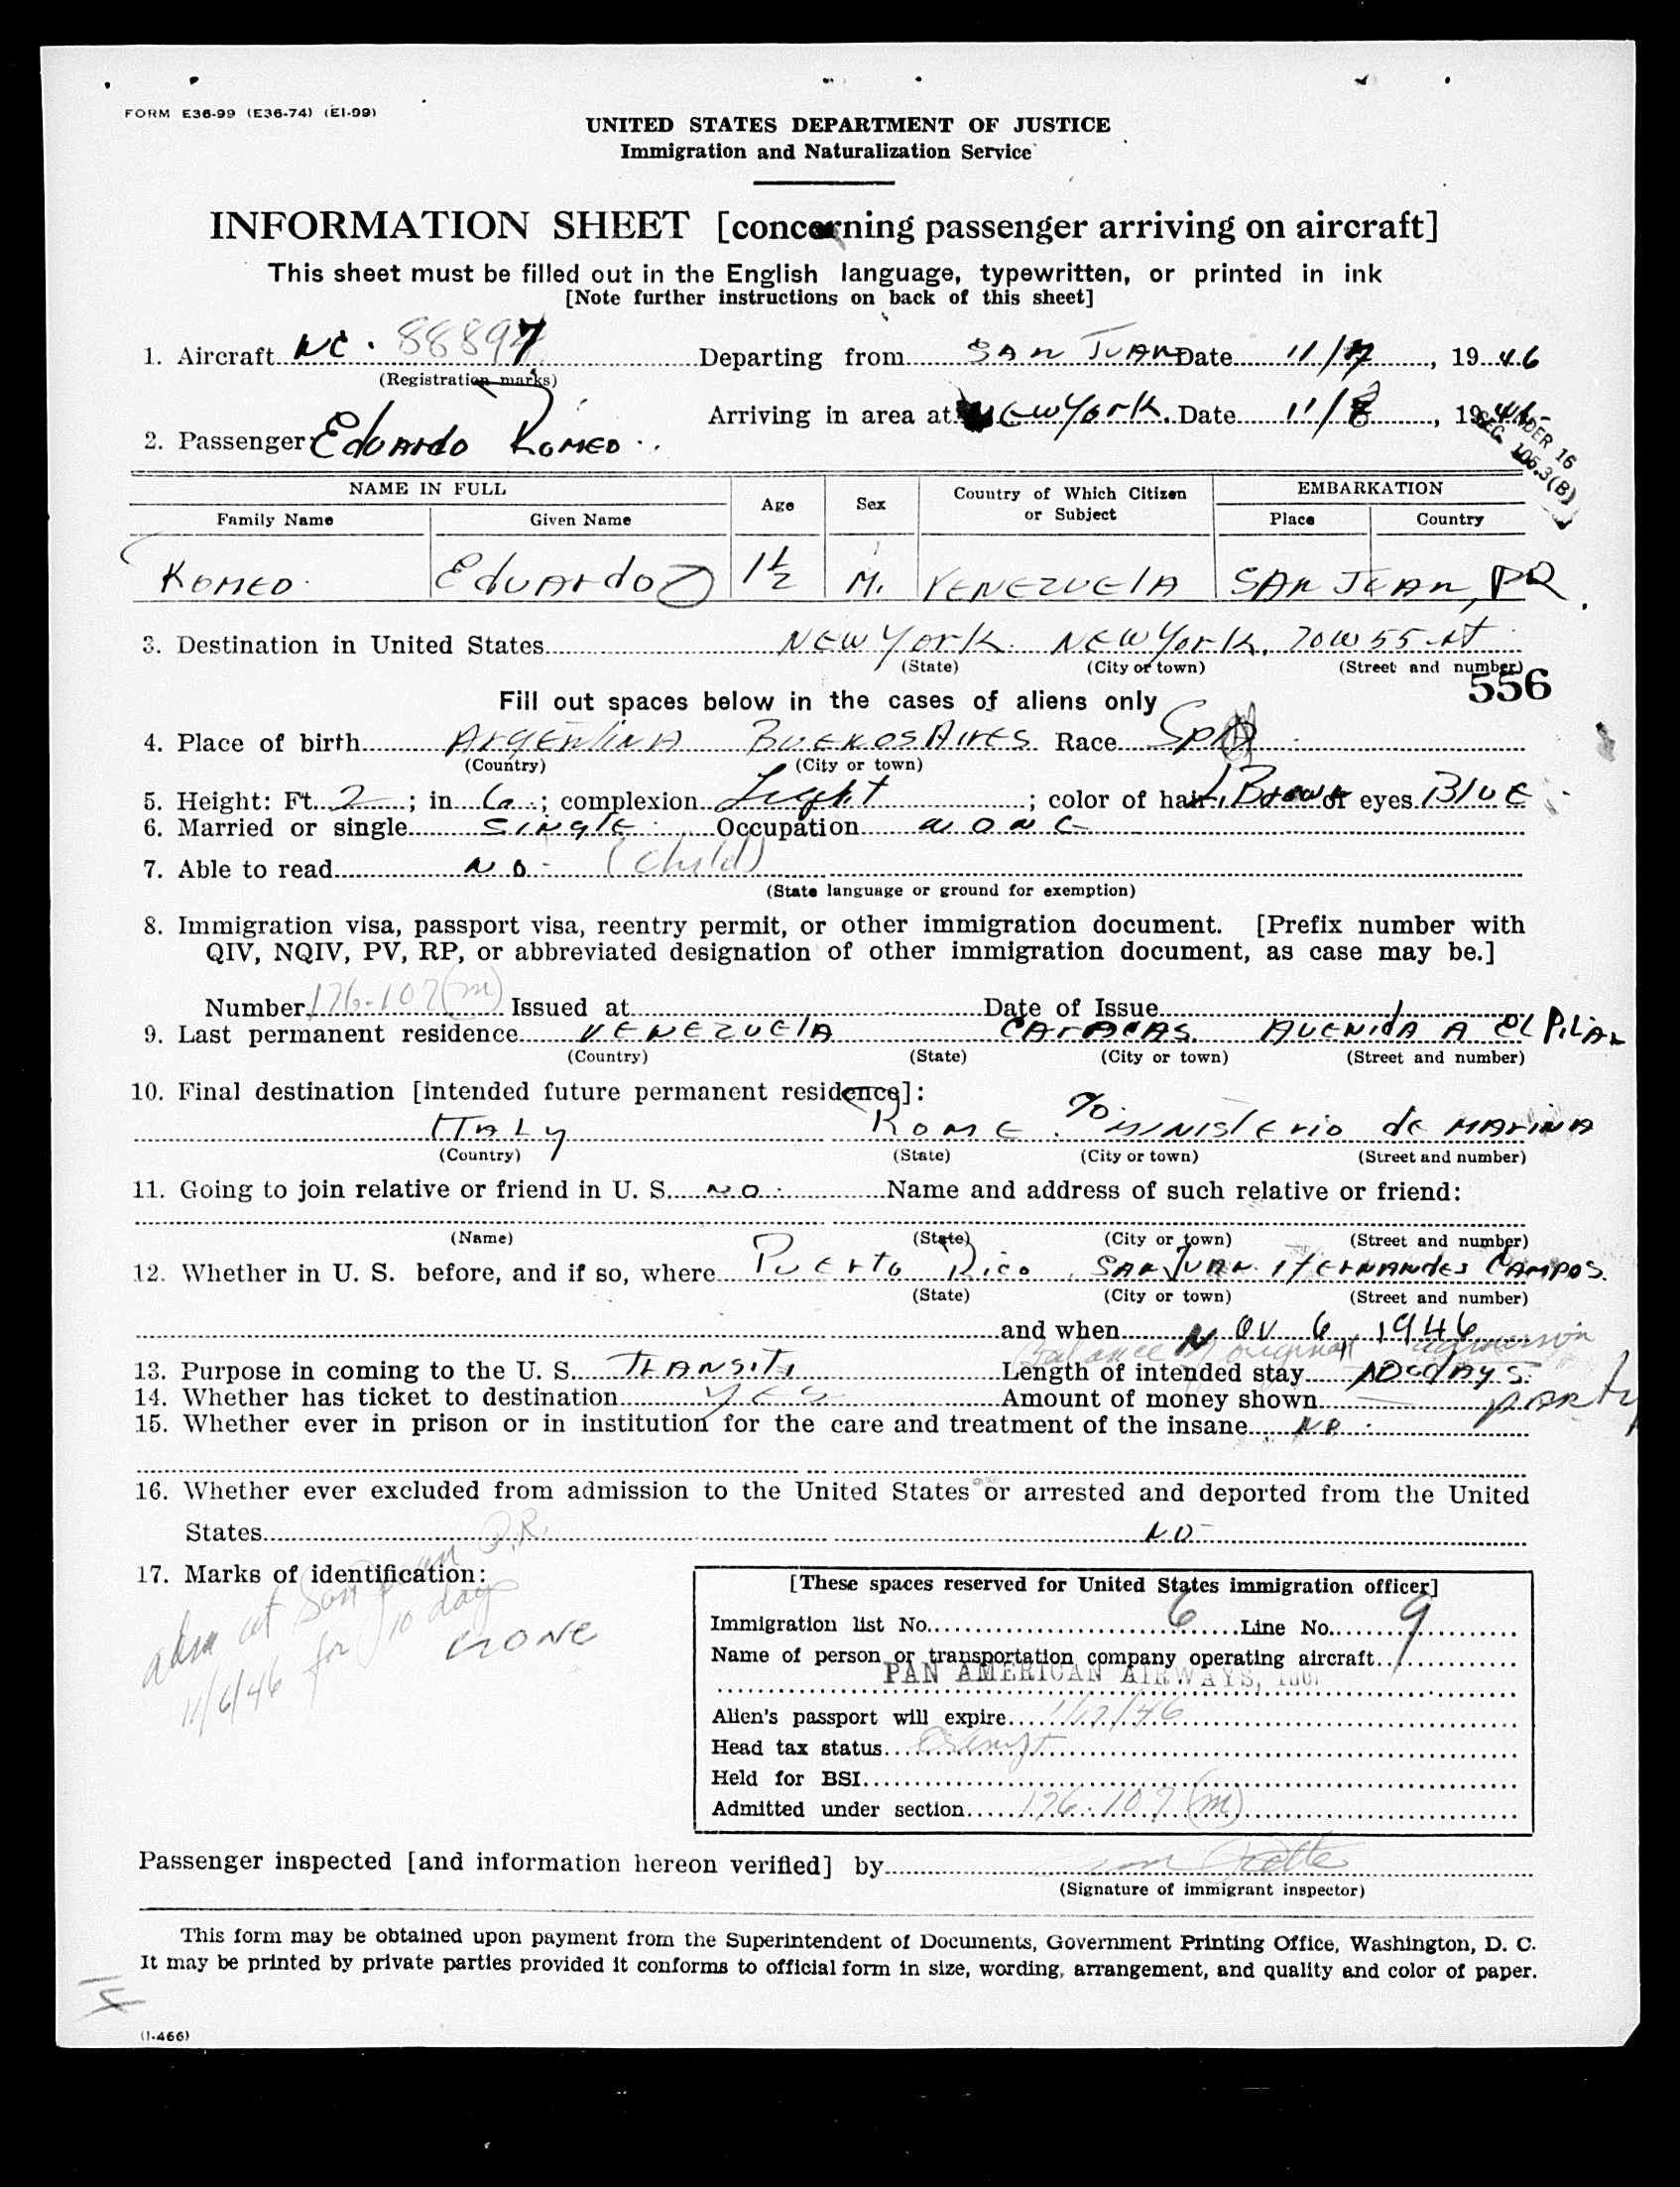 FORM E36-99 (E36-74) (E1-99)
UNITED STATES DEPARTMENT OF JUSTICE
Immigration and Naturalization Service
INFORMATION SHEET [concerning passenger arriving on aircraft]
This sheet must be filled out in the English language, typewritten, or printed in ink
[Note further instructions on back of this sheet]
1. Aircraft NC. 88897 Departing from SAN JUAN Date 11/7, 1946
(Registration marks)
Arriving in area at New York. Date 11/8, 1946
UNDER 16
SEC. 105.3(B)
2. Passenger Eduardo Romeo
NAME IN FULL Age Sex Country of Which Citizen or Subject EMBARKATION
Family Name Given Name Place Country
ROMEO Eduardo 1½ M. VENEZUELA SAN JUAN, PR.
3. Destination in United States New York. New York, 70 W 55 st
(State) (City or town) (Street and number)
556
Fill out spaces below in the cases of aliens only
4. Place of birth Argentina Buenos Aires Race Spa
(Country) (City or town)
5. Height: Ft. 2; in 6; complexion Light; color of hair L. Brown of eyes Blue
6. Married or single Single Occupation none
7. Able to read No - (child)
(State language or ground for exemption)
8. Immigration visa, passport visa, reentry permit, or other immigration document. [Prefix number with
QIV, NQIV, PV, RP, or abbreviated designation of other immigration document, as case may be.]
Number 176.107(m) Issued at Date of Issue
9. Last permanent residence VENEZUELA CARACAS. AVENIDA A El PILAR
(Country) (State) (City or town) (Street and number)
10. Final destination [intended future permanent residence]:
ITALY ROME. % Ministerio de MARINA
(Country) (State) (City or town) (Street and number)
11. Going to join relative or friend in U. S. NO. Name and address of such relative or friend:
(Name) (State) (City or town) (Street and number)
12. Whether in U. S. before, and if so, where Puerto Rico, SAN JUAN. HERNANDES CAMPOS.
(State) (City or town) (Street and number)
and when NOV 6 1946
balance of original admission
13. Purpose in coming to the U. S. TRANSIT Length of intended stay 10 days.
14. Whether has ticket to destination YES Amount of money shown party
15. Whether ever in prison or in institution for the care and treatment of the insane NO.
16. Whether ever excluded from admission to the United States or arrested and deported from the United
States NO
17. Marks of identification:
adm at San Juan P.R.
11/6/46 for 10 days
NONE
[These spaces reserved for United States immigration officer]
Immigration list No. 6 Line No. 9
Name of person or transportation company operating aircraft
PAN AMERICAN AIRWAYS, INC.
Alien's passport will expire
Head tax status Exempt
Held for BSI
Admitted under section 176.107(m)
Passenger inspected [and information hereon verified] by
(Signature of immigrant inspector)
This form may be obtained upon payment from the Superintendent of Documents, Government Printing Office, Washington, D. C.
It may be printed by private parties provided it conforms to official form in size, wording, arrangement, and quality and color of paper.
(I-466)